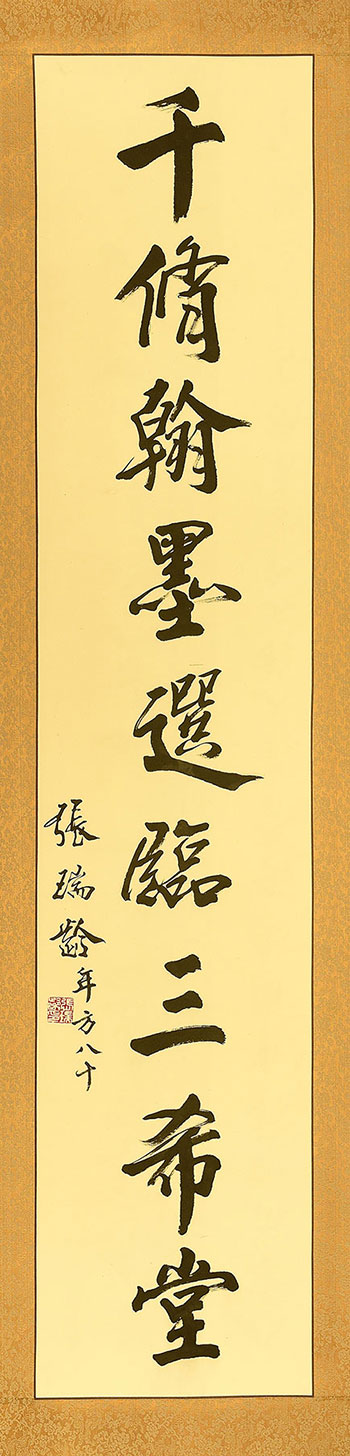 千脩翰墨選臨三希堂
張瑞齡年方八十